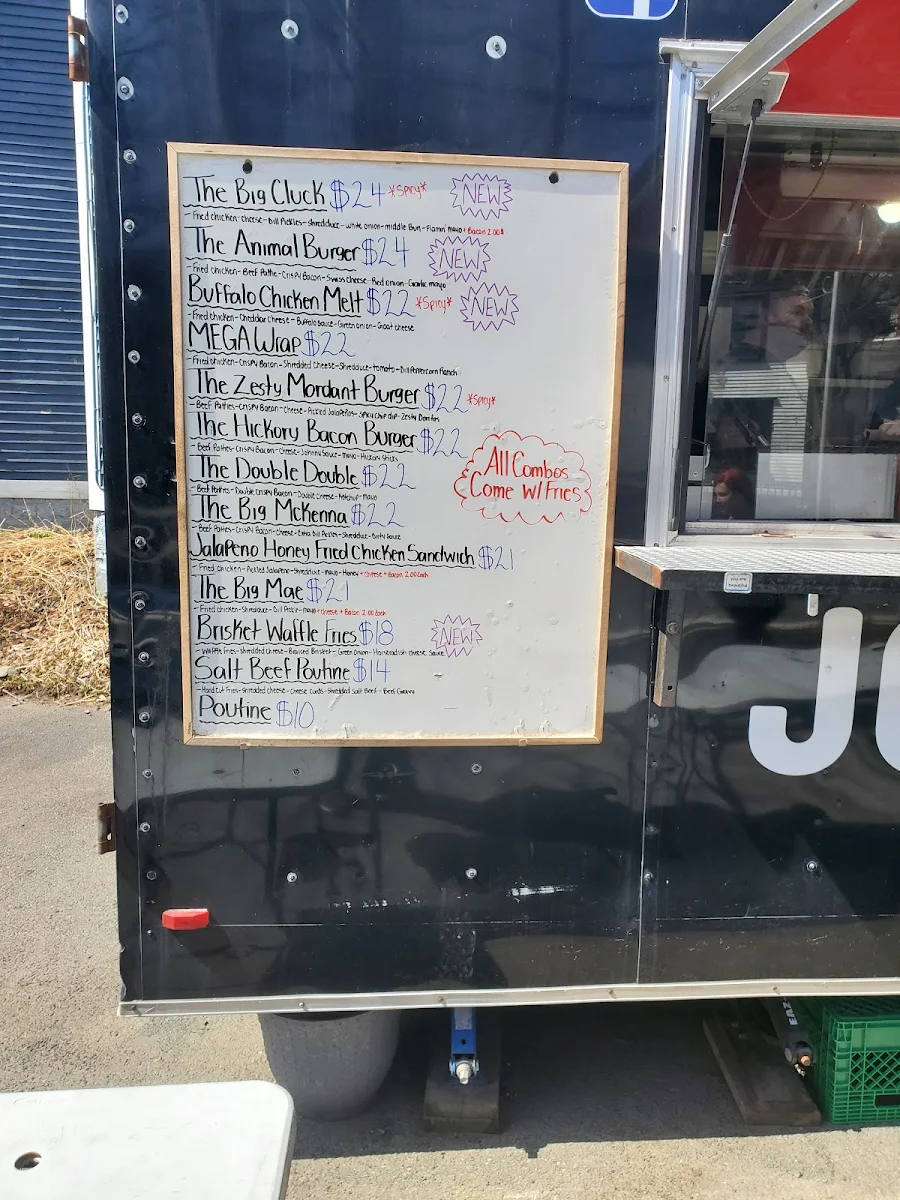 The Big Cluck $24 *Spicy* NEW
Fried chicken-cheese-Dill Pickles-shredduce-white onion-middle Bun-Flamin' mayo + Bacon 2.00$
The Animal Burger $24 NEW
Fried chicken-Beef Pattie-Crispy Bacon-Swiss cheese-Red onion-Garlic mayo
Buffalo Chicken Melt $22 *Spicy* NEW
Fried chicken-Cheddar cheese-Buffalo Sauce-Green onion-Goat cheese
MEGA Wrap $22
Fried chicken-Crispy Bacon-Shredded Cheese-Shredduce-tomato-Dill Peppercorn Ranch
The Zesty Mordant Burger $22 *Spicy*
Beef Patties-Crispy Bacon-Cheese-Pickled Jalapeños-Spicy chip dip-Zesty Doritos
The Hickory Bacon Burger $22
Beef Patties-Crispy Bacon-Cheese-Johnny Sauce-mayo-Hickory Sticks
All Combos
Come W/ Fries
The Double Double $22
Beef Patties-Double crispy Bacon-Double cheese-Ketchup-mayo
The Big McKenna $22
Beef Patties-Crispy Bacon-cheese-Extra Dill Pickles-Shredduce-Dirty Sauce
Jalapeno Honey Fried Chicken Sandwich $21
Fried chicken-Pickled Jalapeno-Shredduce-mayo-Honey + Cheese + Bacon 2.00 Each
The Big Mae $21
Fried chicken-Shredduce-Dill Pickle-mayo + Cheese + Bacon 2.00 Each
Brisket Waffle Fries $18 NEW
Waffle Fries-shredded cheese-Braised Brisket-Green Onion-Horseradish cheese Sauce
Salt Beef Poutine $14
Hand Cut Fries-shredded cheese-cheese curds-shredded Salt Beef-Beef Gravy
Poutine $10
you are
beautiful
J